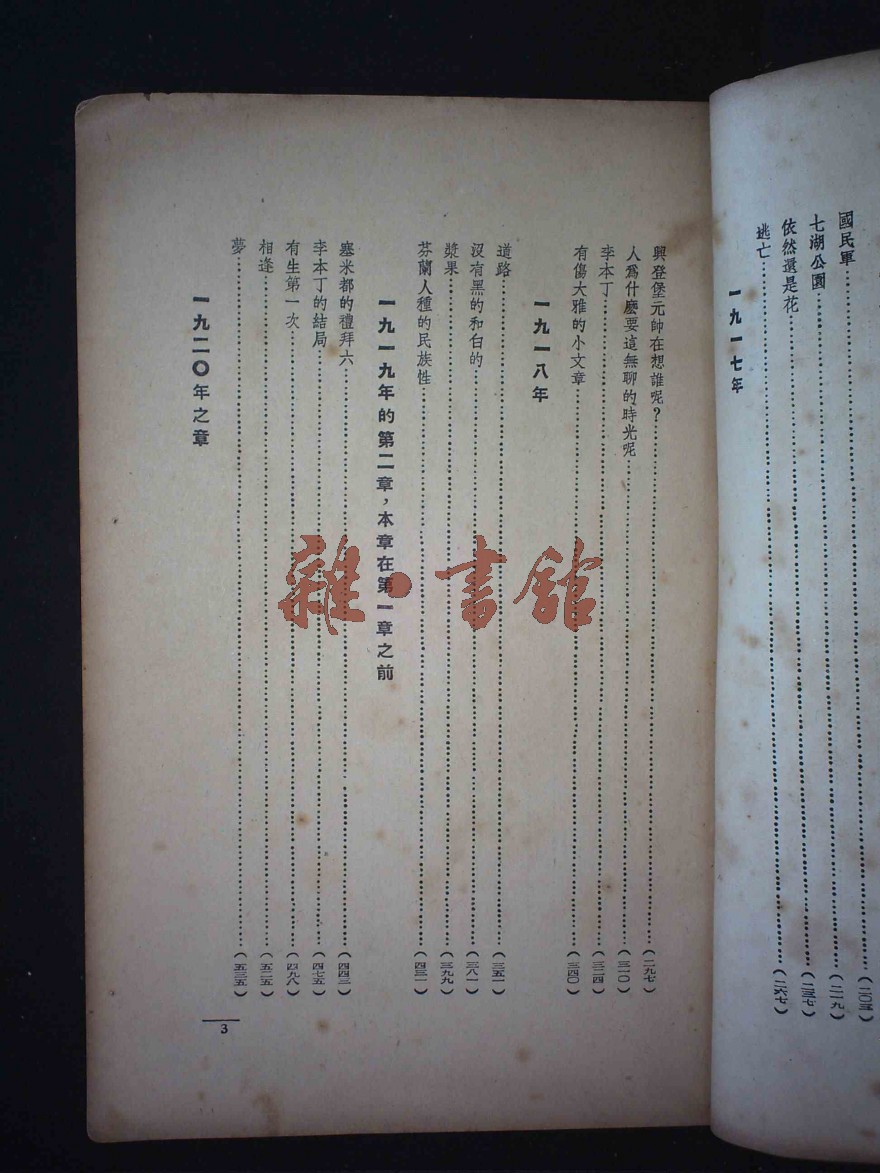 國民軍……(二一九)
七湖公園……(二三七)
依然還是花
逃亡……(二六七)
一九一七年
興登堡元帥在想誰呢？……(二九七)
人爲什麽要這無聊的時光呢……(三一〇)
李本丁……(三二四)
有傷大雅的小文章……(三四〇)
一九一八年
道路……(三五一)
沒有黑的和白的……(三八一)
漿果……(三九九)
芬蘭人種的民族性……(四三一)
一九一九年的第二章，本章在第一章之前
塞米都的禮拜六……(四四三)
李本丁的結局……(四七五)
有生第一次……(四九八)
相逢……(五二五)
夢……(五三五)
一九二〇年之章
3
雜·書館